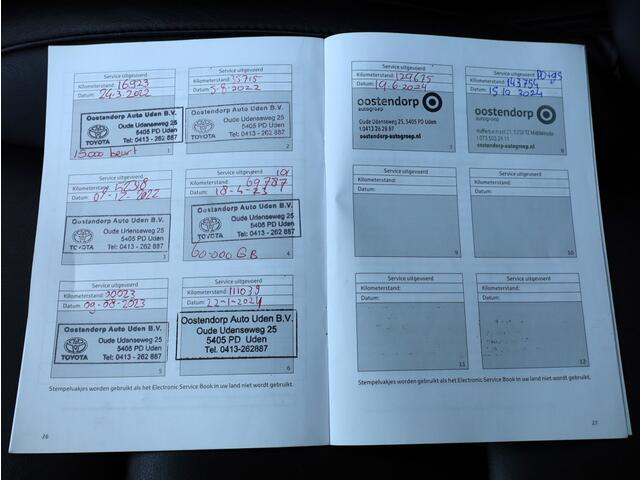 Service uitgevoerd
Kilometerstand: 16923
Datum: 24-3-2022
Oostendorp Auto Uden B.V.
Oude Udenseweg 25
5405 PD Uden
Tel: 0413 - 262 887
TOYOTA
15000 beurt
1
Service uitgevoerd
Kilometerstand: 35715
Datum: 5-8-2022
Oostendorp Auto Uden B.V.
Oude Udenseweg 25
5405 PD Uden
Tel: 0413 - 262 887
TOYOTA
2
Service uitgevoerd
Kilometerstand:
Datum: 07-12-2022
Oostendorp Auto Uden B.V.
Oude Udenseweg 25
5405 PD Uden
Tel: 0413 - 262 887
TOYOTA
3
Service uitgevoerd
Kilometerstand: 69787
Datum: 18-4-23
Oostendorp Auto Uden B.V.
Oude Udenseweg 25
5405 PD Uden
Tel: 0413 - 262 887
TOYOTA
60.000 GB
4
Service uitgevoerd
Kilometerstand: 90023
Datum: 09-08-2023
Oostendorp Auto Uden B.V.
Oude Udenseweg 25
5405 PD Uden
Tel: 0413 - 262 887
TOYOTA
5
Service uitgevoerd
Kilometerstand: 111039
Datum: 22-1-2024
Oostendorp Auto Uden B.V.
Oude Udenseweg 25
5405 PD Uden
Tel. 0413-262887
6
Stempelvakjes worden gebruikt als het Electronic Service Book in uw land niet wordt gebruikt.
26
Service uitgevoerd
Kilometerstand: 129675
Datum: 19-6-2024
oostendorp
autogroep
Oude Udenseweg 25, 5405 PD Uden
t 0413 26 28 87
oostendorp-autogroep.nl
7
Service uitgevoerd
Kilometerstand: 143754
Datum: 15-10-2024
oostendorp
autogroep
t 073 503 24 11
oostendorp-autogroep.nl
8
Service uitgevoerd
Kilometerstand:
Datum:
9
Service uitgevoerd
Kilometerstand:
Datum:
10
Service uitgevoerd
Kilometerstand:
Datum:
11
Service uitgevoerd
Kilometerstand:
Datum:
12
Stempelvakjes worden gebruikt als het Electronic Service Book in uw land niet wordt gebruikt.
27